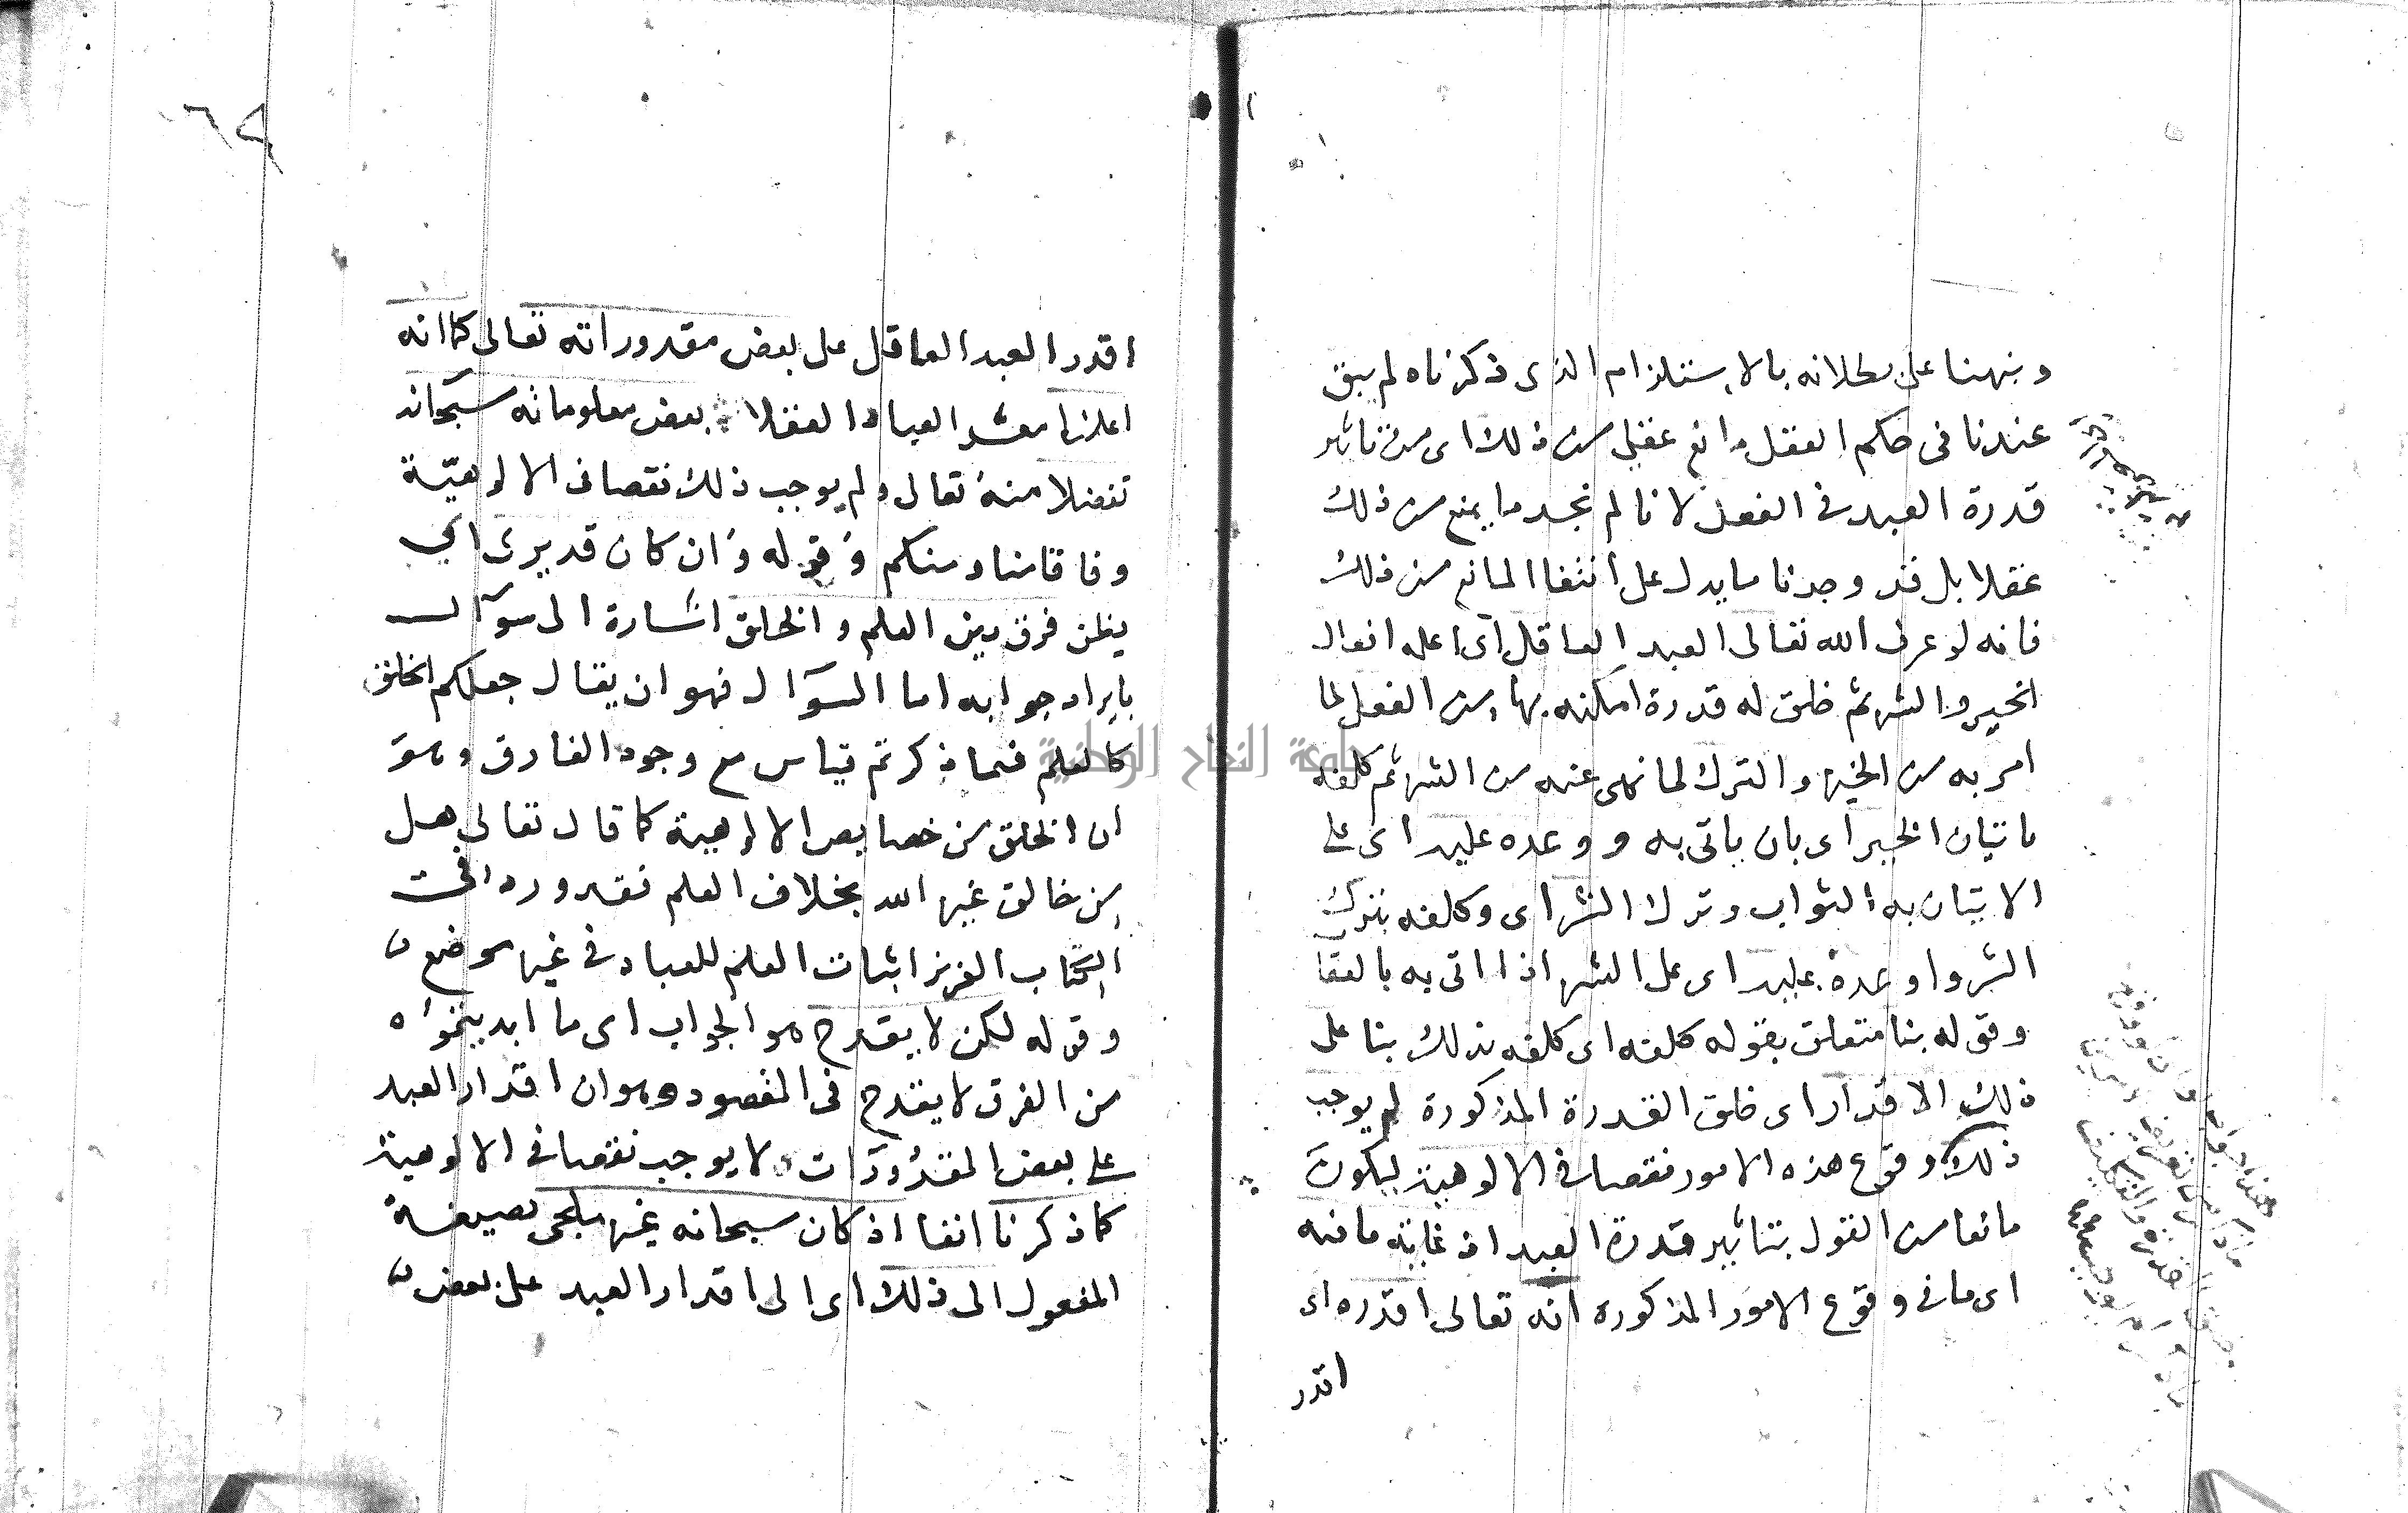 ونبهنا على بطلانه بالاستلزام الذى ذكرناه لم يبق
عندنا فى حكم العقل مانع عقلى من ذلك اى من تاثير
قدرة العبد فى الفعل لانا لم نجد ما يمنع من ذلك
عقلا بل قد وجدنا ما يدل على انتفا المانع من ذلك
فانه لو عرف الله تعالى العبد العاقل اى اعلمه افعال
الخير والشر ثم خلق له قدرة امكنه بها من الفعل لما
امر به من الخير والترك لما نهى عنه من الشر ثم كلفه
باتيان الخير اى بان ياتى به و وعده عليه اى على
الاتيان به الثواب وترك الشر اى وكلفه بترك
الشر واوعده عليه اى على الشر اذا اتى به بالعقا
وقوله بنا متعلق بقوله كلفه اى كلفه بذلك بنا على
ذلك الاقدار اى خلق القدرة المذكورة لم يوجب
ذلك وقوع هذه الامور نقصا فى الالوهية ليكون
مانعا من القول بتاثير قدرة العبد اذ غايته ما فيه
اى ما فى وقوع الامور المذكورة انه تعالى اقدره اى
اقدر
٦٩
اقدر العبد العاقل على بعض مقدوراته تعالى كما انه
اعلمنا معشر العباد العقلا بعض معلوماته سبحانه
تفضلا منه تعالى ولم يوجب ذلك نقصا فى الالوهيّة
وفاقا منا ومنكم و قوله وان كان قد يرى اى
يظن فرق بين العلم والخلق اشارة الى سوآل
بايراد جوابه اما السوآل فهو ان يقال جعلكم الخلق
كالعلم فيما ذكرتم قياس مع وجود الفارق وهو
ان الخلق من خصايص الالوهية كما قال تعالى هل
من خالق غير الله بخلاف العلم فقد ورد فى
الكتاب العزيز اثبات العلم للعباد فى غير موضع
وقوله لكن لا يقدح هو الجواب اى ما ابديتموه
من الفرق لا يقدح فى المقصود وهو ان اقدار العبد
على بعض المقدورات لا يوجب نقصا فى الالوهية
كما ذكرنا انفا اذ كان سبحانه غير ملجى بصيغة
المفعول الى ذلك اى الى اقدار العبد على بعض
جامعة النجاح الوطنية